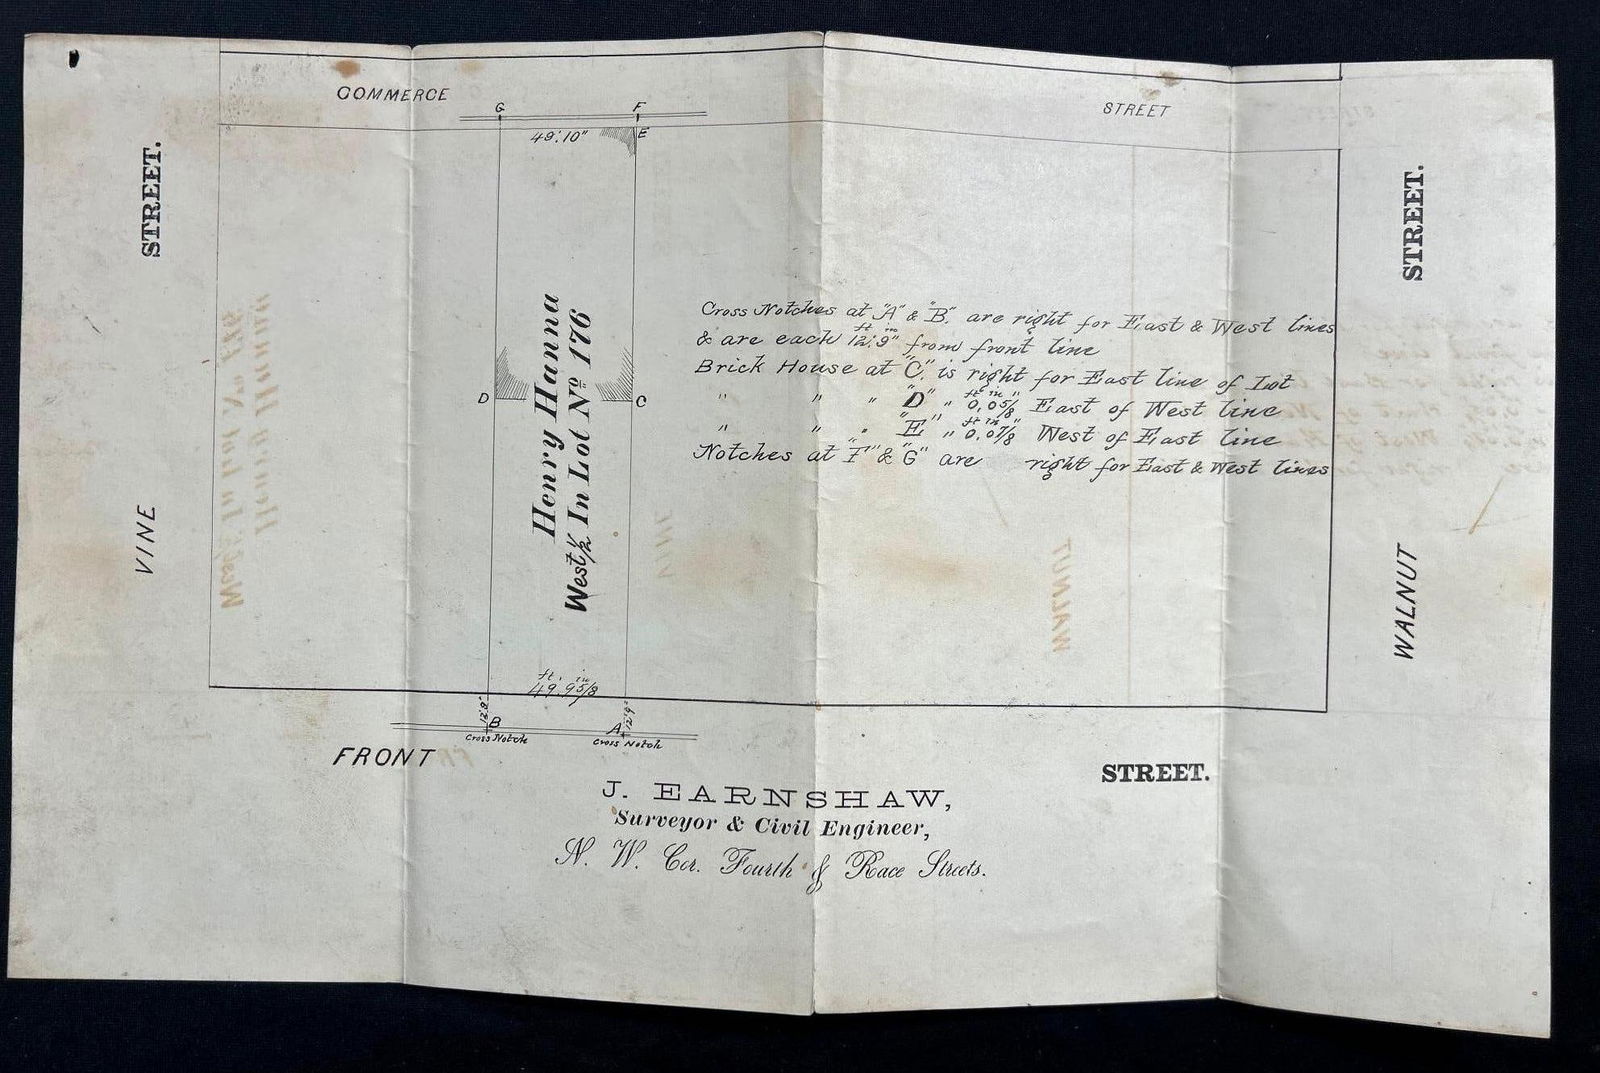 COMMERCE STREET
G F
49'.10" E
VINE STREET.
WALNUT STREET.
Henry Hanna
West 1/2 In Lot No 176
D C
Cross Notches at "A" & "B" are right for East & West lines
& are each 12ft.9in" from front line
Brick House at "C" is right for East line of Lot
" " " "D" " 0ft.0in5/8" East of West line
" " " "E" " 0ft.0in7/8" West of East line
Notches at "F" & "G" are right for East & West lines
49ft.9in5/8
12'9" B A 12'9"
Cross Notch Cross Notch
FRONT STREET.
J. EARNSHAW,
Surveyor & Civil Engineer,
N. W. Cor. Fourth & Race Streets.